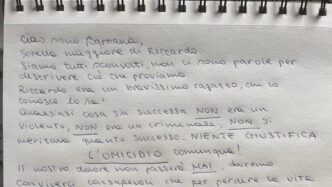 Ciao sono Barbara,
Sorella maggiore di Riccardo.
Siamo tutti sconvolti, non ci sono parole per
descrivere ciò che proviamo.
Riccardo era un bravissimo ragazzo, chi lo
conosce lo sa!
Qualsiasi cosa sia successa NON era un
violento, NON era un criminale, NON si
meritava quanto successo. NIENTE GIUSTIFICA
L'OMICIDIO comunque!
Il nostro dolore non passerà MAI, dovremo
conviverci consapevoli che per perdere la vita